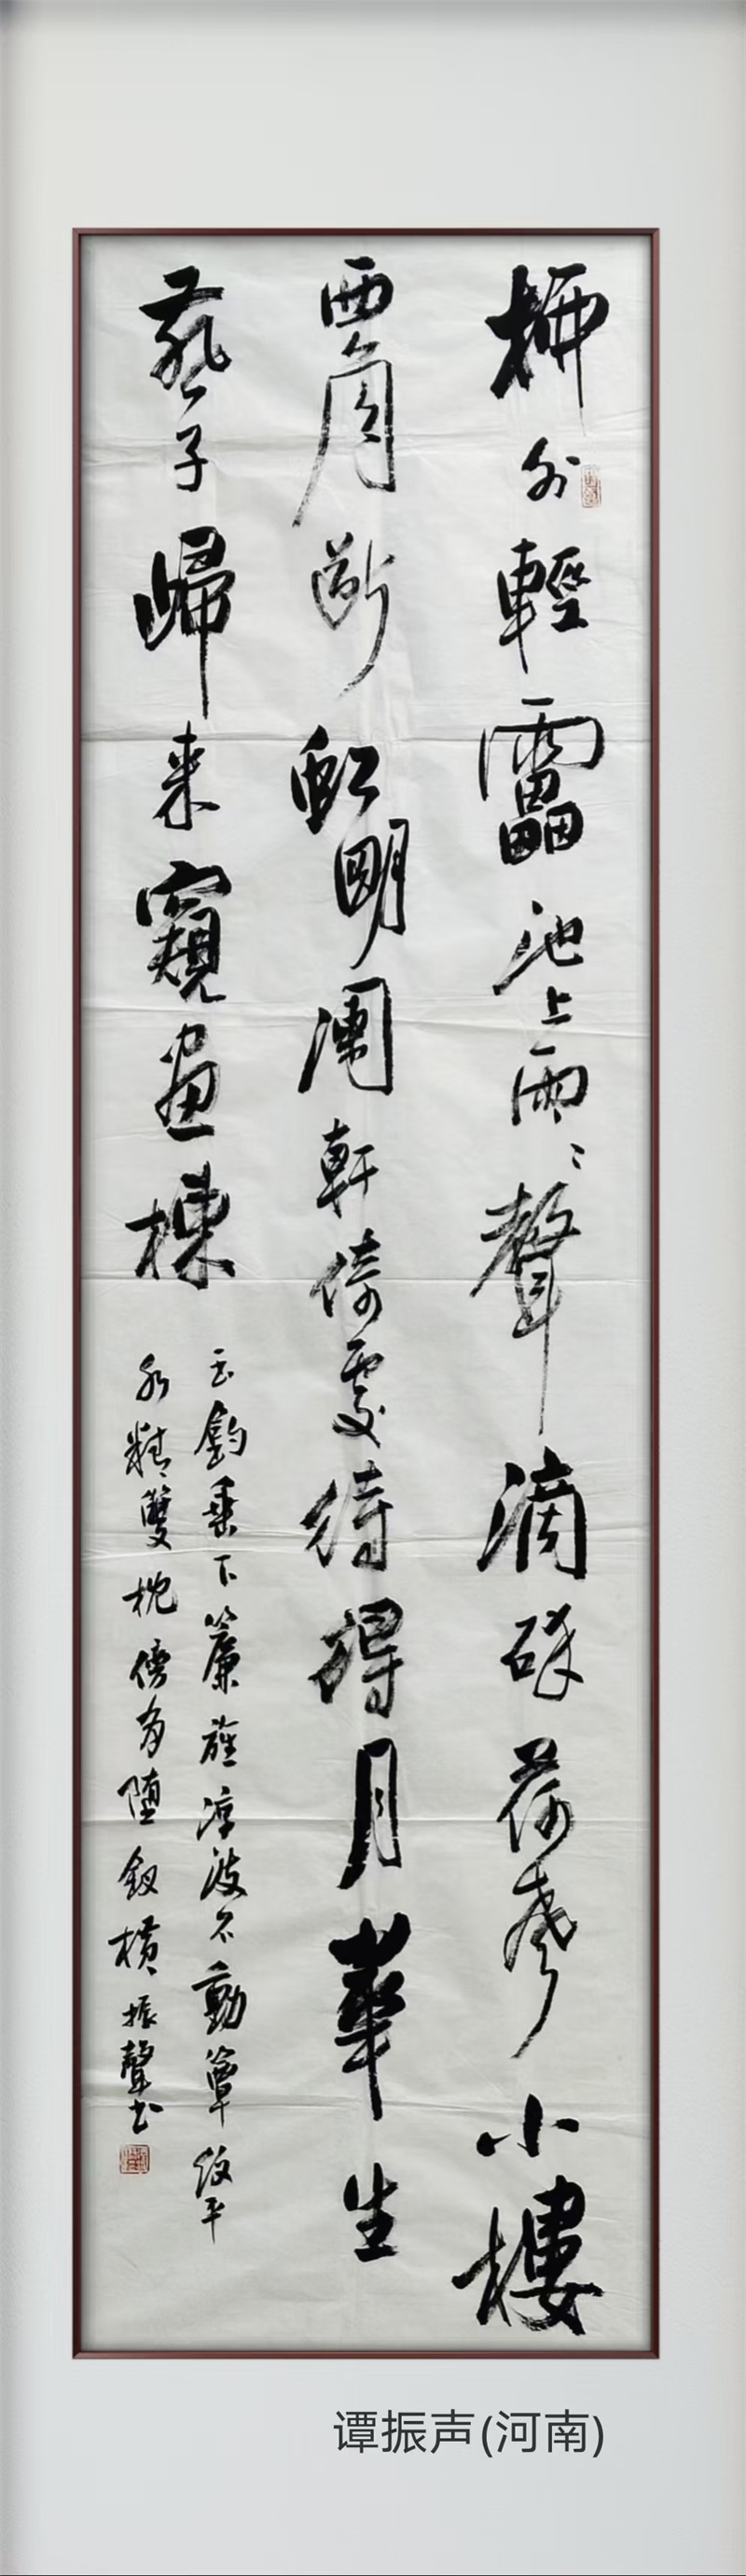 柳外輕靁池上雨〻聲滴碎荷聲小樓
西角斷虹明闌軒倚處待得月華生
燕子歸来窺畫棟
玉鈎垂下簾旌涼波不動簟紋平
水精雙枕傍有堕釵横振聲书
谭振声(河南)